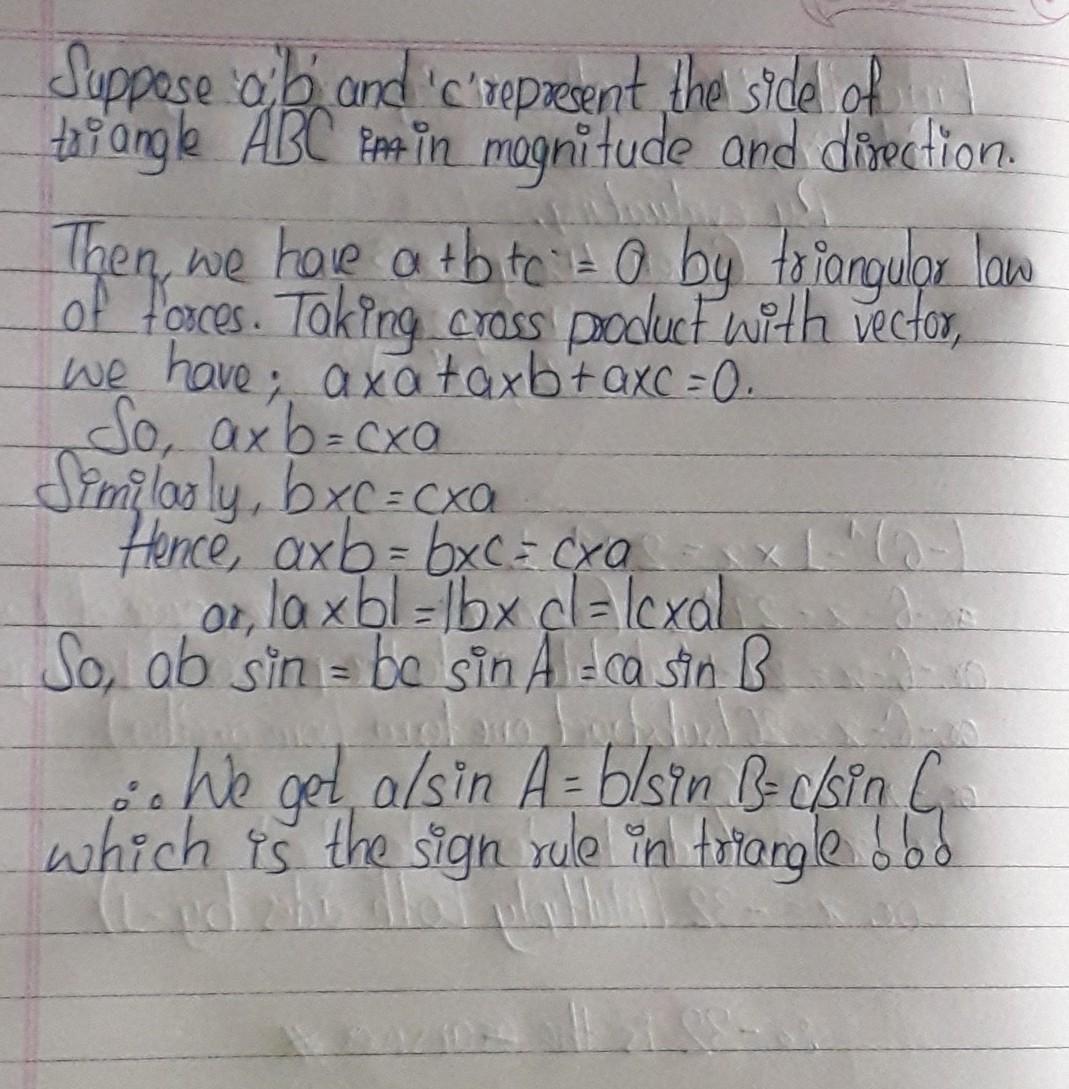 Suppose 'a,'b' and 'c' represent the side of
triangle ABC in magnitude and direction.
Then, we have a+b+c = 0 by triangular law
of forces. Taking cross product with vector,
we have; axa+axb+axc=0.
So, axb=cxa
Similarly, bxc=cxa
Hence, axb=bxc=cxa
or, |axb|=|bxc|=|cxa|
So, ab sin = bc sin A =ca sin B
∴ We get, a/sin A = b/sin B= c/sin C,
which is the sign rule in triangle